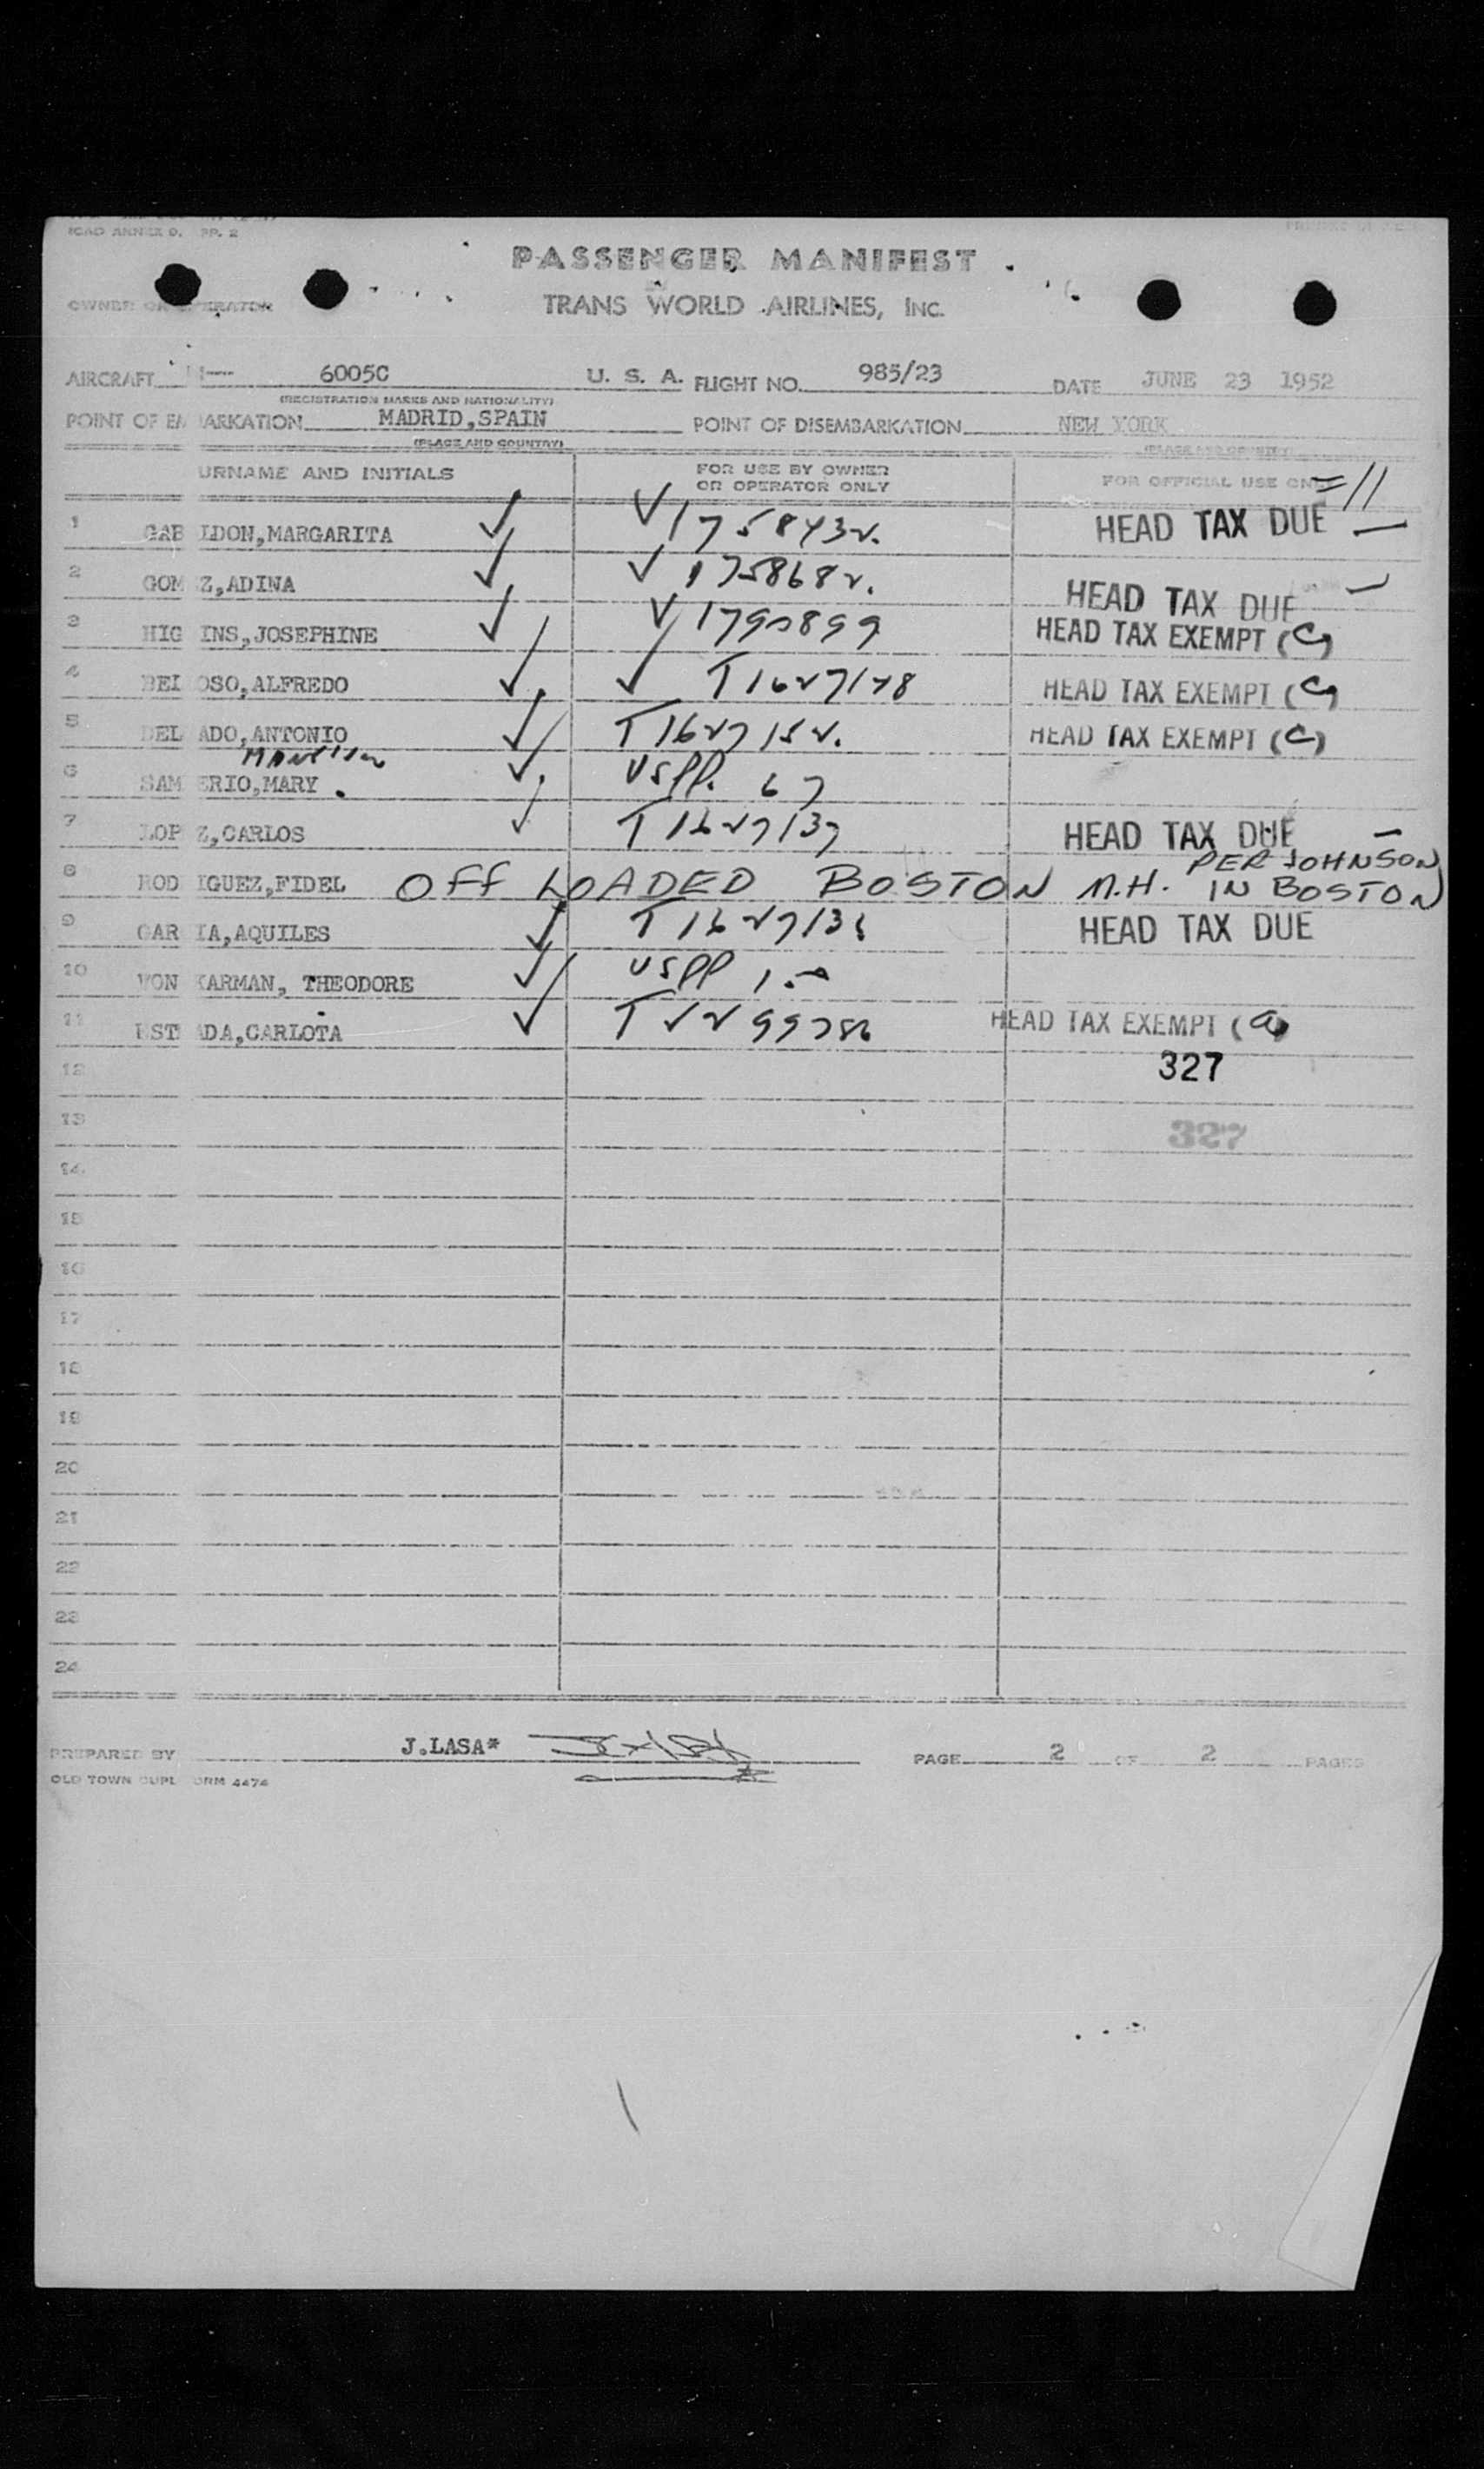 ICAO ANNEX 9, PP. 2
PASSENGER MANIFEST
OWNER OR OPERATOR
TRANS WORLD AIRLINES, INC.
AIRCRAFT N---- 6005C U. S. A. FLIGHT NO. 985/23 DATE JUNE 23 1952
(REGISTRATION MARKS AND NATIONALITY)
POINT OF EM ARKATION MADRID,SPAIN POINT OF DISEMBARKATION NEW YORK
(PLACE AND COUNTRY) (PLACE AND COUNTRY)
URNAME AND INITIALS FOR USE BY OWNER OR OPERATOR ONLY FOR OFFICIAL USE ONLY =11
1 GAB LDON,MARGARITA ✓ ✓ 1758432. HEAD TAX DUE —
2 GOM Z,ADINA ✓ ✓ 1758682. HEAD TAX DUE —
3 HIG INS,JOSEPHINE ✓ ✓ 1790899 HEAD TAX EXEMPT (C)
4 OSO,ALFREDO ✓ ✓ T1627128 HEAD TAX EXEMPT (C)
5 DEL ADO,ANTONIO ✓ T1627152. HEAD TAX EXEMPT (C)
6 SAM ERIO,MARY. ✓ USPP. 67
7 LOP Z,CARLOS ✓ T1627137 HEAD TAX DUE —
8 ROD IGUEZ,FIDEL OFF LOADED BOSTON M.H. PER JOHNSON IN BOSTON
9 GAR IA,AQUILES ✓ HEAD TAX DUE
10 VON KARMAN, THEODORE ✓ USPP
11 EST ADA,CARLOTA ✓ HEAD TAX EXEMPT (a)
12 327
13 327
14
15
16
17
18
19
20
21
22
23
24
PREPARED BY J.LASA* PAGE 2 OF 2 PAGES
OLD TOWN DUPL ORM 4474